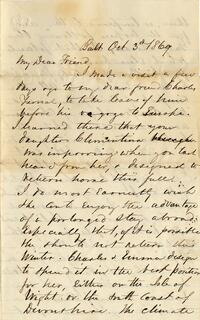 Balt Oct. 3rd 1869
My Dear Friend,
I made a visit a few
days ago to my dear friend Charles
to take leave of him
before his voyage to Europe.
I learned there that your
daughter Clementina
was improving when you last
heard from her, & designed to
return home this fall.
I do most earnestly wish
she could enjoy the advantage
of a prolonged stay abroad.
Especially that, if it is possible
she should not return this
Winter. Charles & Emma design
to spend it in the best portion
for her, either on the Isle of
Wight, or the south coast of
Devonshire. The climate